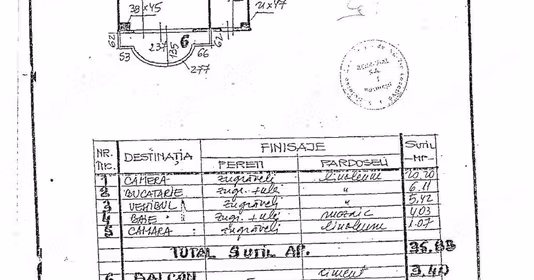 38x45
21x47
62
237
135
6
62
53
66
277
NR. ÎNC. DESTINAȚIA FINISAJE SUTIL
PEREȚI PARDOSELI MP.
1 CAMERA zugrăveli linoleum 20.20
2 BUCATARIE zugr. + ulei " 6.11
3 VESTIBUL zugrăveli " 5.42
4 BAIE zugr. + ulei mozaic 4.03
5 CAMARA zugrăveli linoleum 1.07
TOTAL SUTIL AP.
6 BALCON ciment 3.40